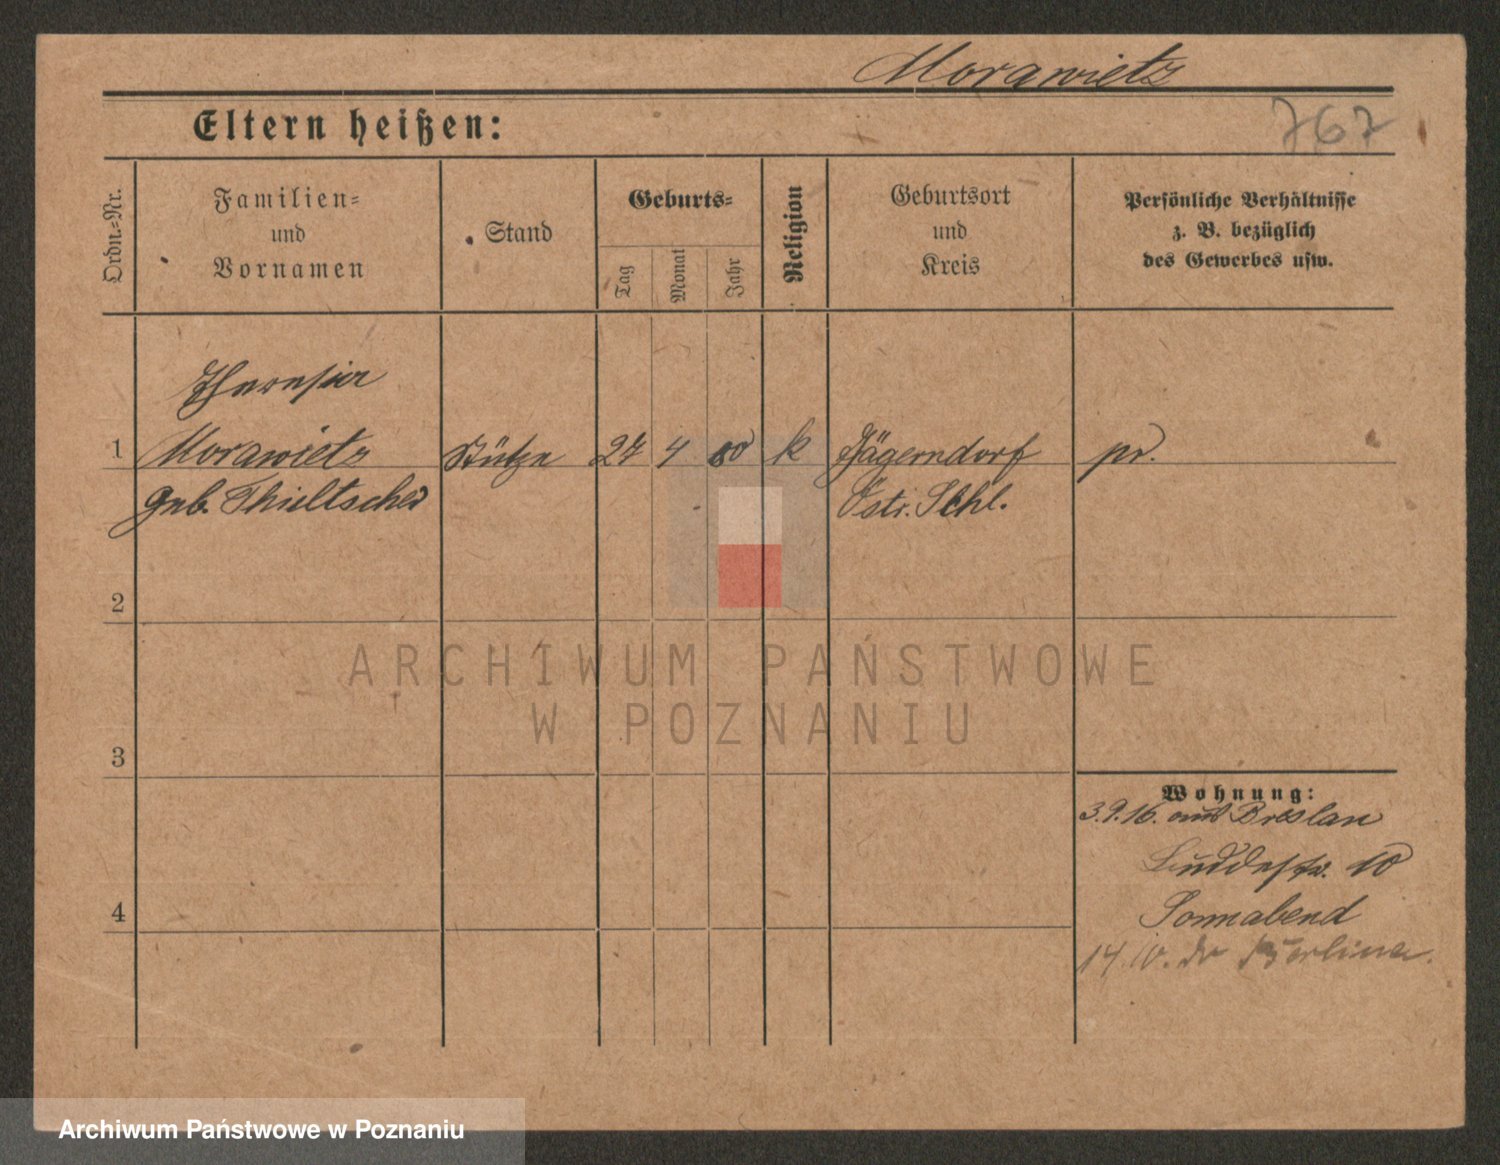 Morawietz
767
Eltern heißen:
Ordn.=Nr.
Familien=
und
Vornamen
Stand
Geburts=
Tag
Monat
Jahr
Religion
Geburtsort
und
Kreis
Persönliche Verhältnisse
z. B. bezüglich
des Gewerbes usw.
Theresia
1 Morawietz Stütze 24 4 80 k Jägerndorf pr.
geb. Thieltscher Östr. Schl.
2
3
4
Wohnung:
3.9.16. aus Breslau
Buddestr. 10
Sonnabend
14.10.
ARCHIWUM PAŃSTWOWE
W POZNANIU
Archiwum Państwowe w Poznaniu